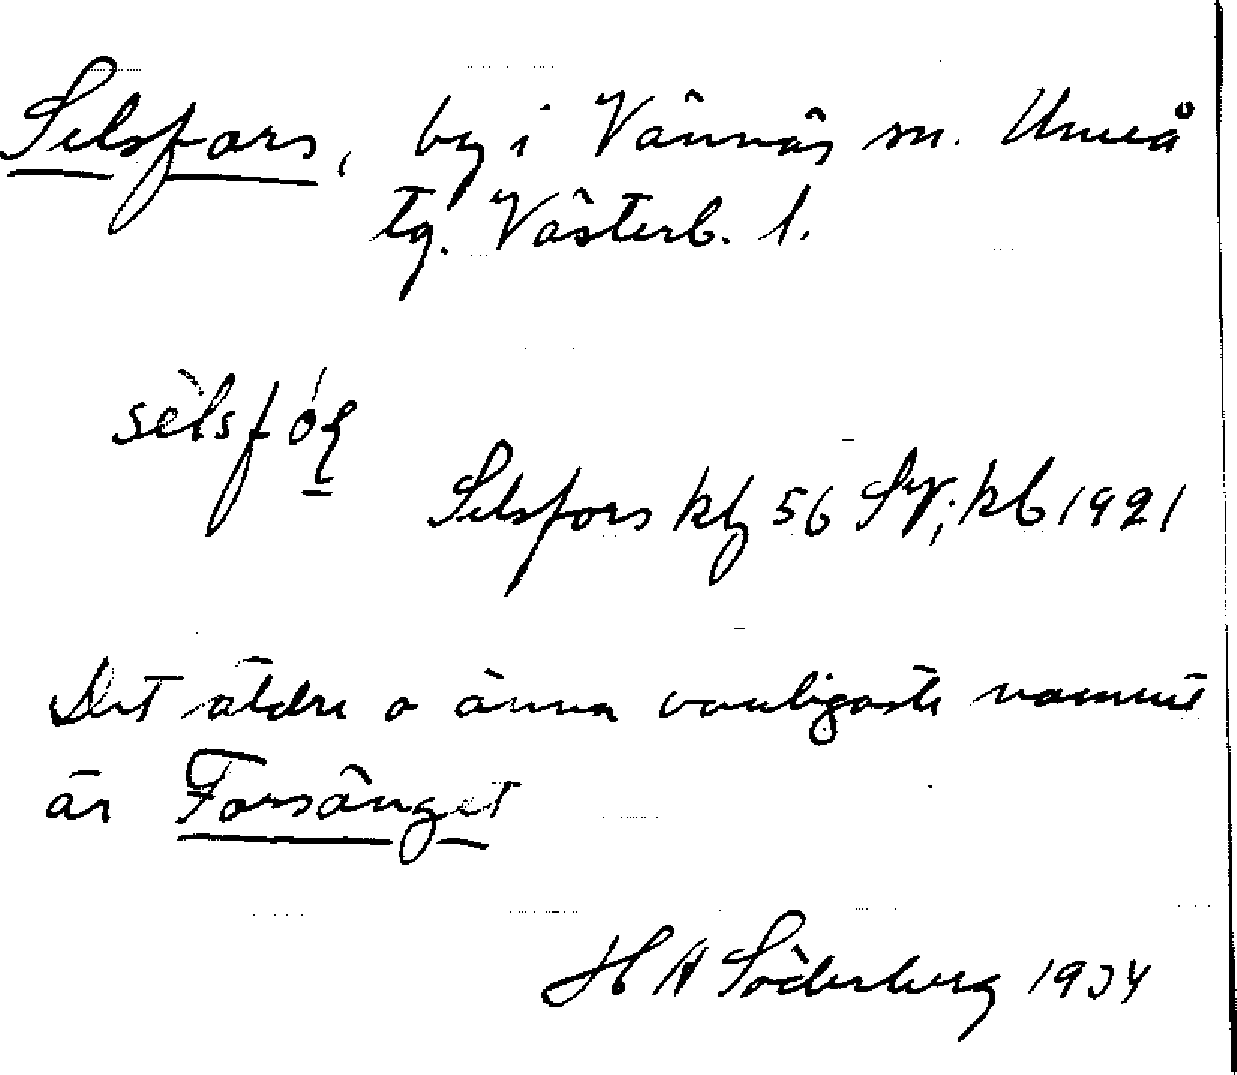 Selsfors, by i Vännäs sn. Umeå
tg. Västerb. l.
Selsfors kbl 56 SV; kb 1921
Det äldre o ännu vanligaste namnet
är Forsänget
H A Söderberg 1934